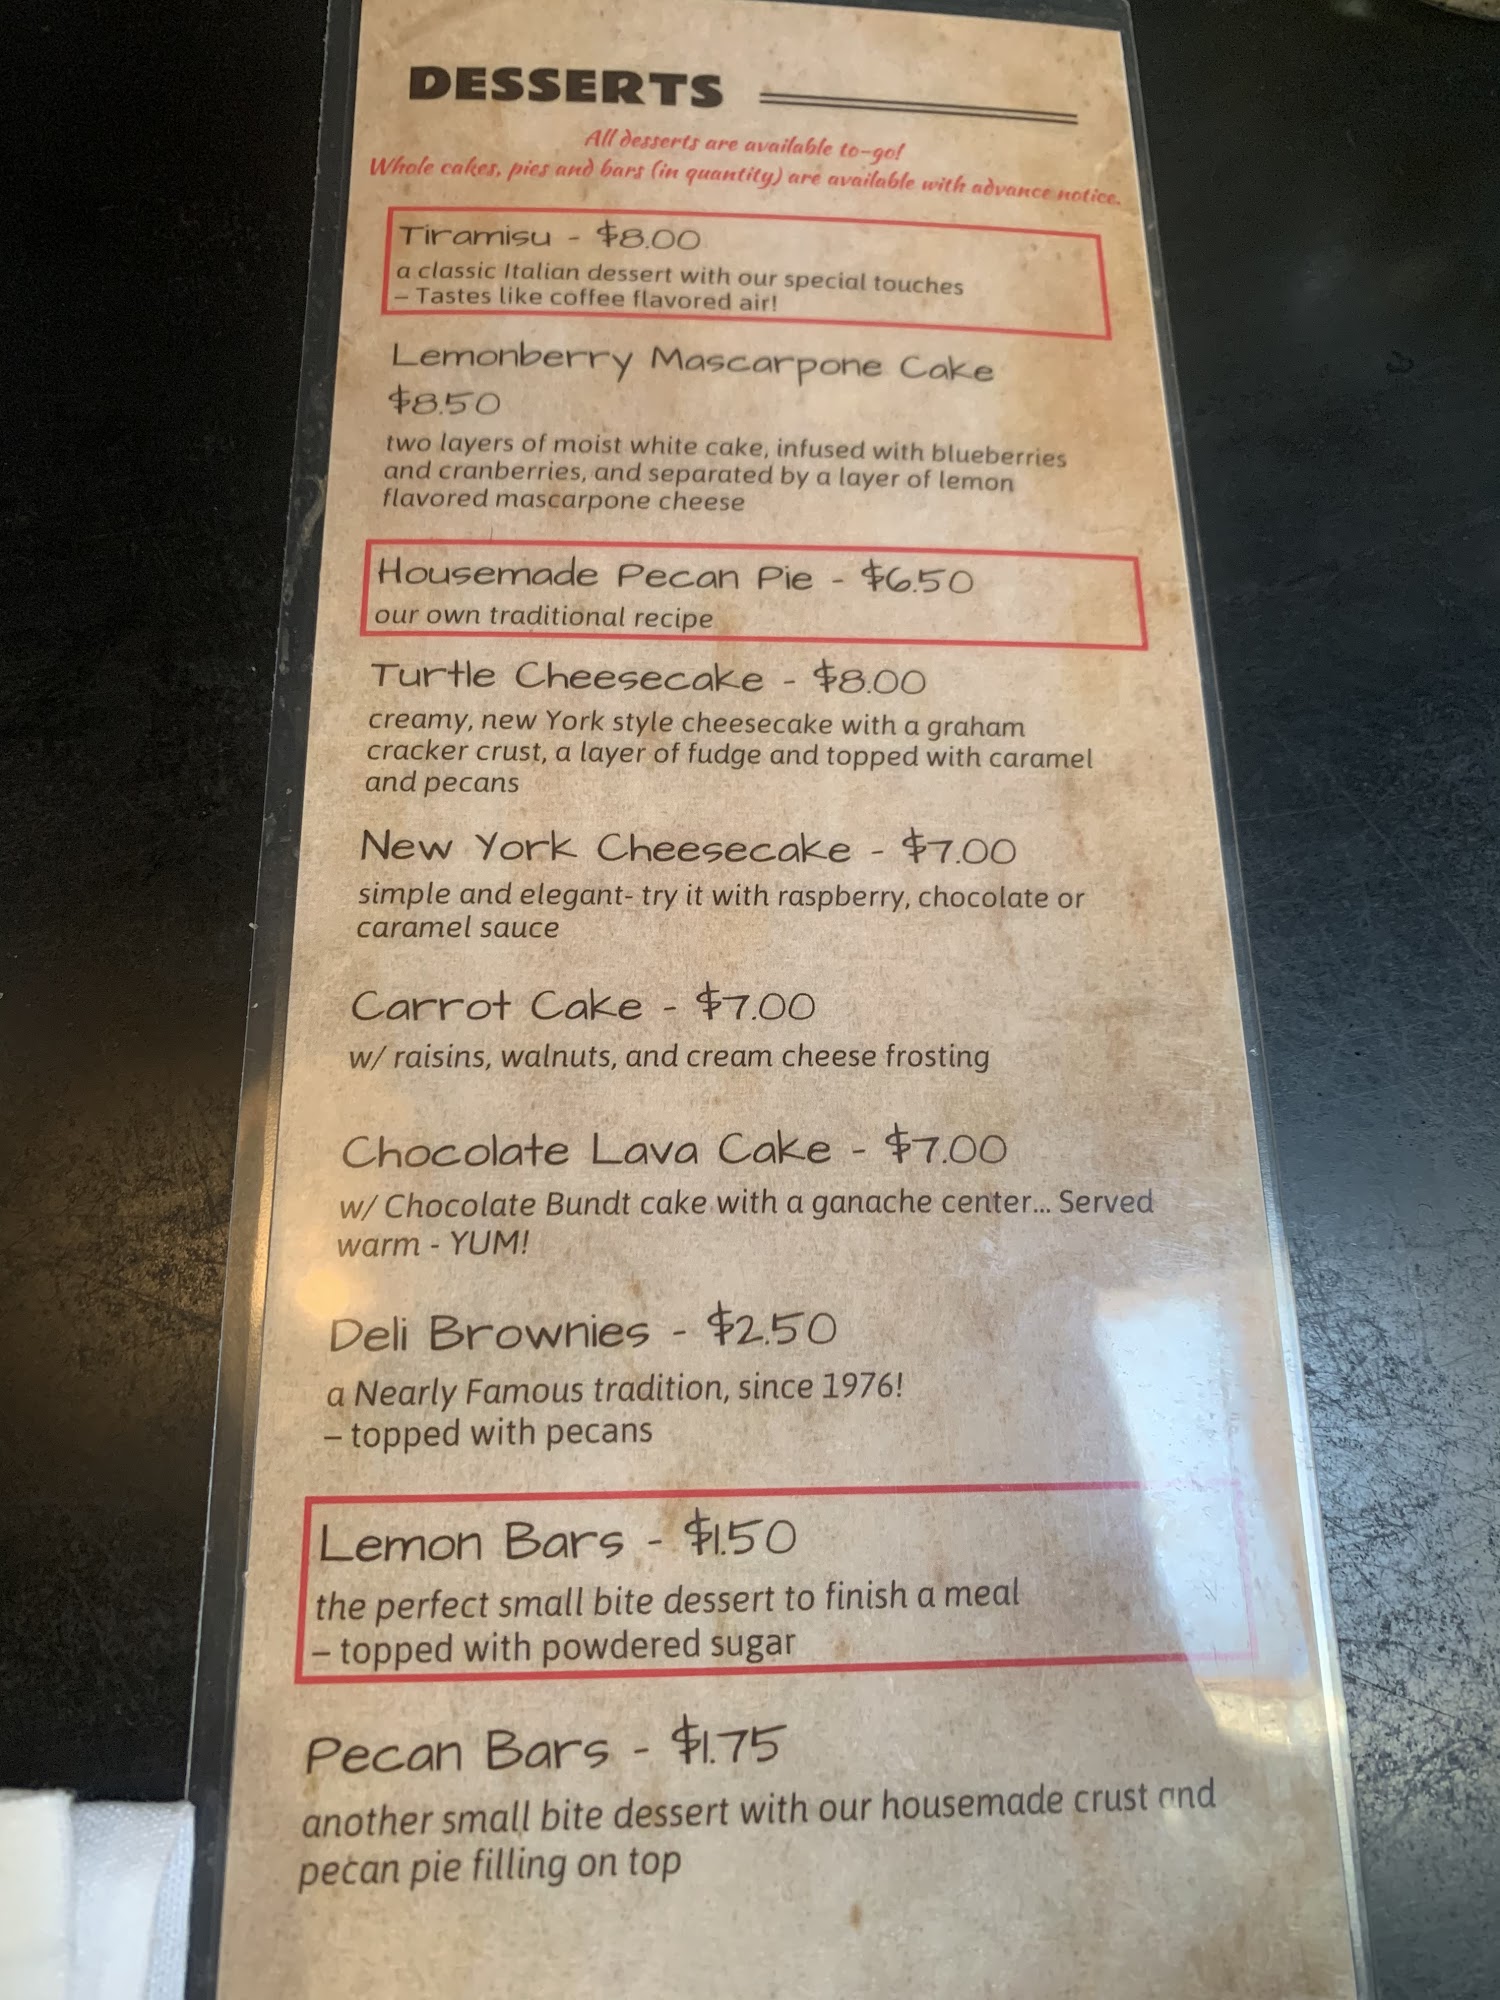 DESSERTS
All desserts are available to-go!
Whole cakes, pies and bars (in quantity) are available with advance notice.
Tiramisu - $8.00
a classic Italian dessert with our special touches
– Tastes like coffee flavored air!
Lemonberry Mascarpone Cake
$8.50
two layers of moist white cake, infused with blueberries
and cranberries, and separated by a layer of lemon
flavored mascarpone cheese
Housemade Pecan Pie - $6.50
our own traditional recipe
Turtle Cheesecake - $8.00
creamy, new York style cheesecake with a graham
cracker crust, a layer of fudge and topped with caramel
and pecans
New York Cheesecake - $7.00
simple and elegant- try it with raspberry, chocolate or
caramel sauce
Carrot Cake - $7.00
w/ raisins, walnuts, and cream cheese frosting
Chocolate Lava Cake - $7.00
w/ Chocolate Bundt cake with a ganache center... Served
warm - YUM!
Deli Brownies - $2.50
a Nearly Famous tradition, since 1976!
– topped with pecans
Lemon Bars - $1.50
the perfect small bite dessert to finish a meal
– topped with powdered sugar
Pecan Bars - $1.75
another small bite dessert with our housemade crust and
pecan pie filling on top